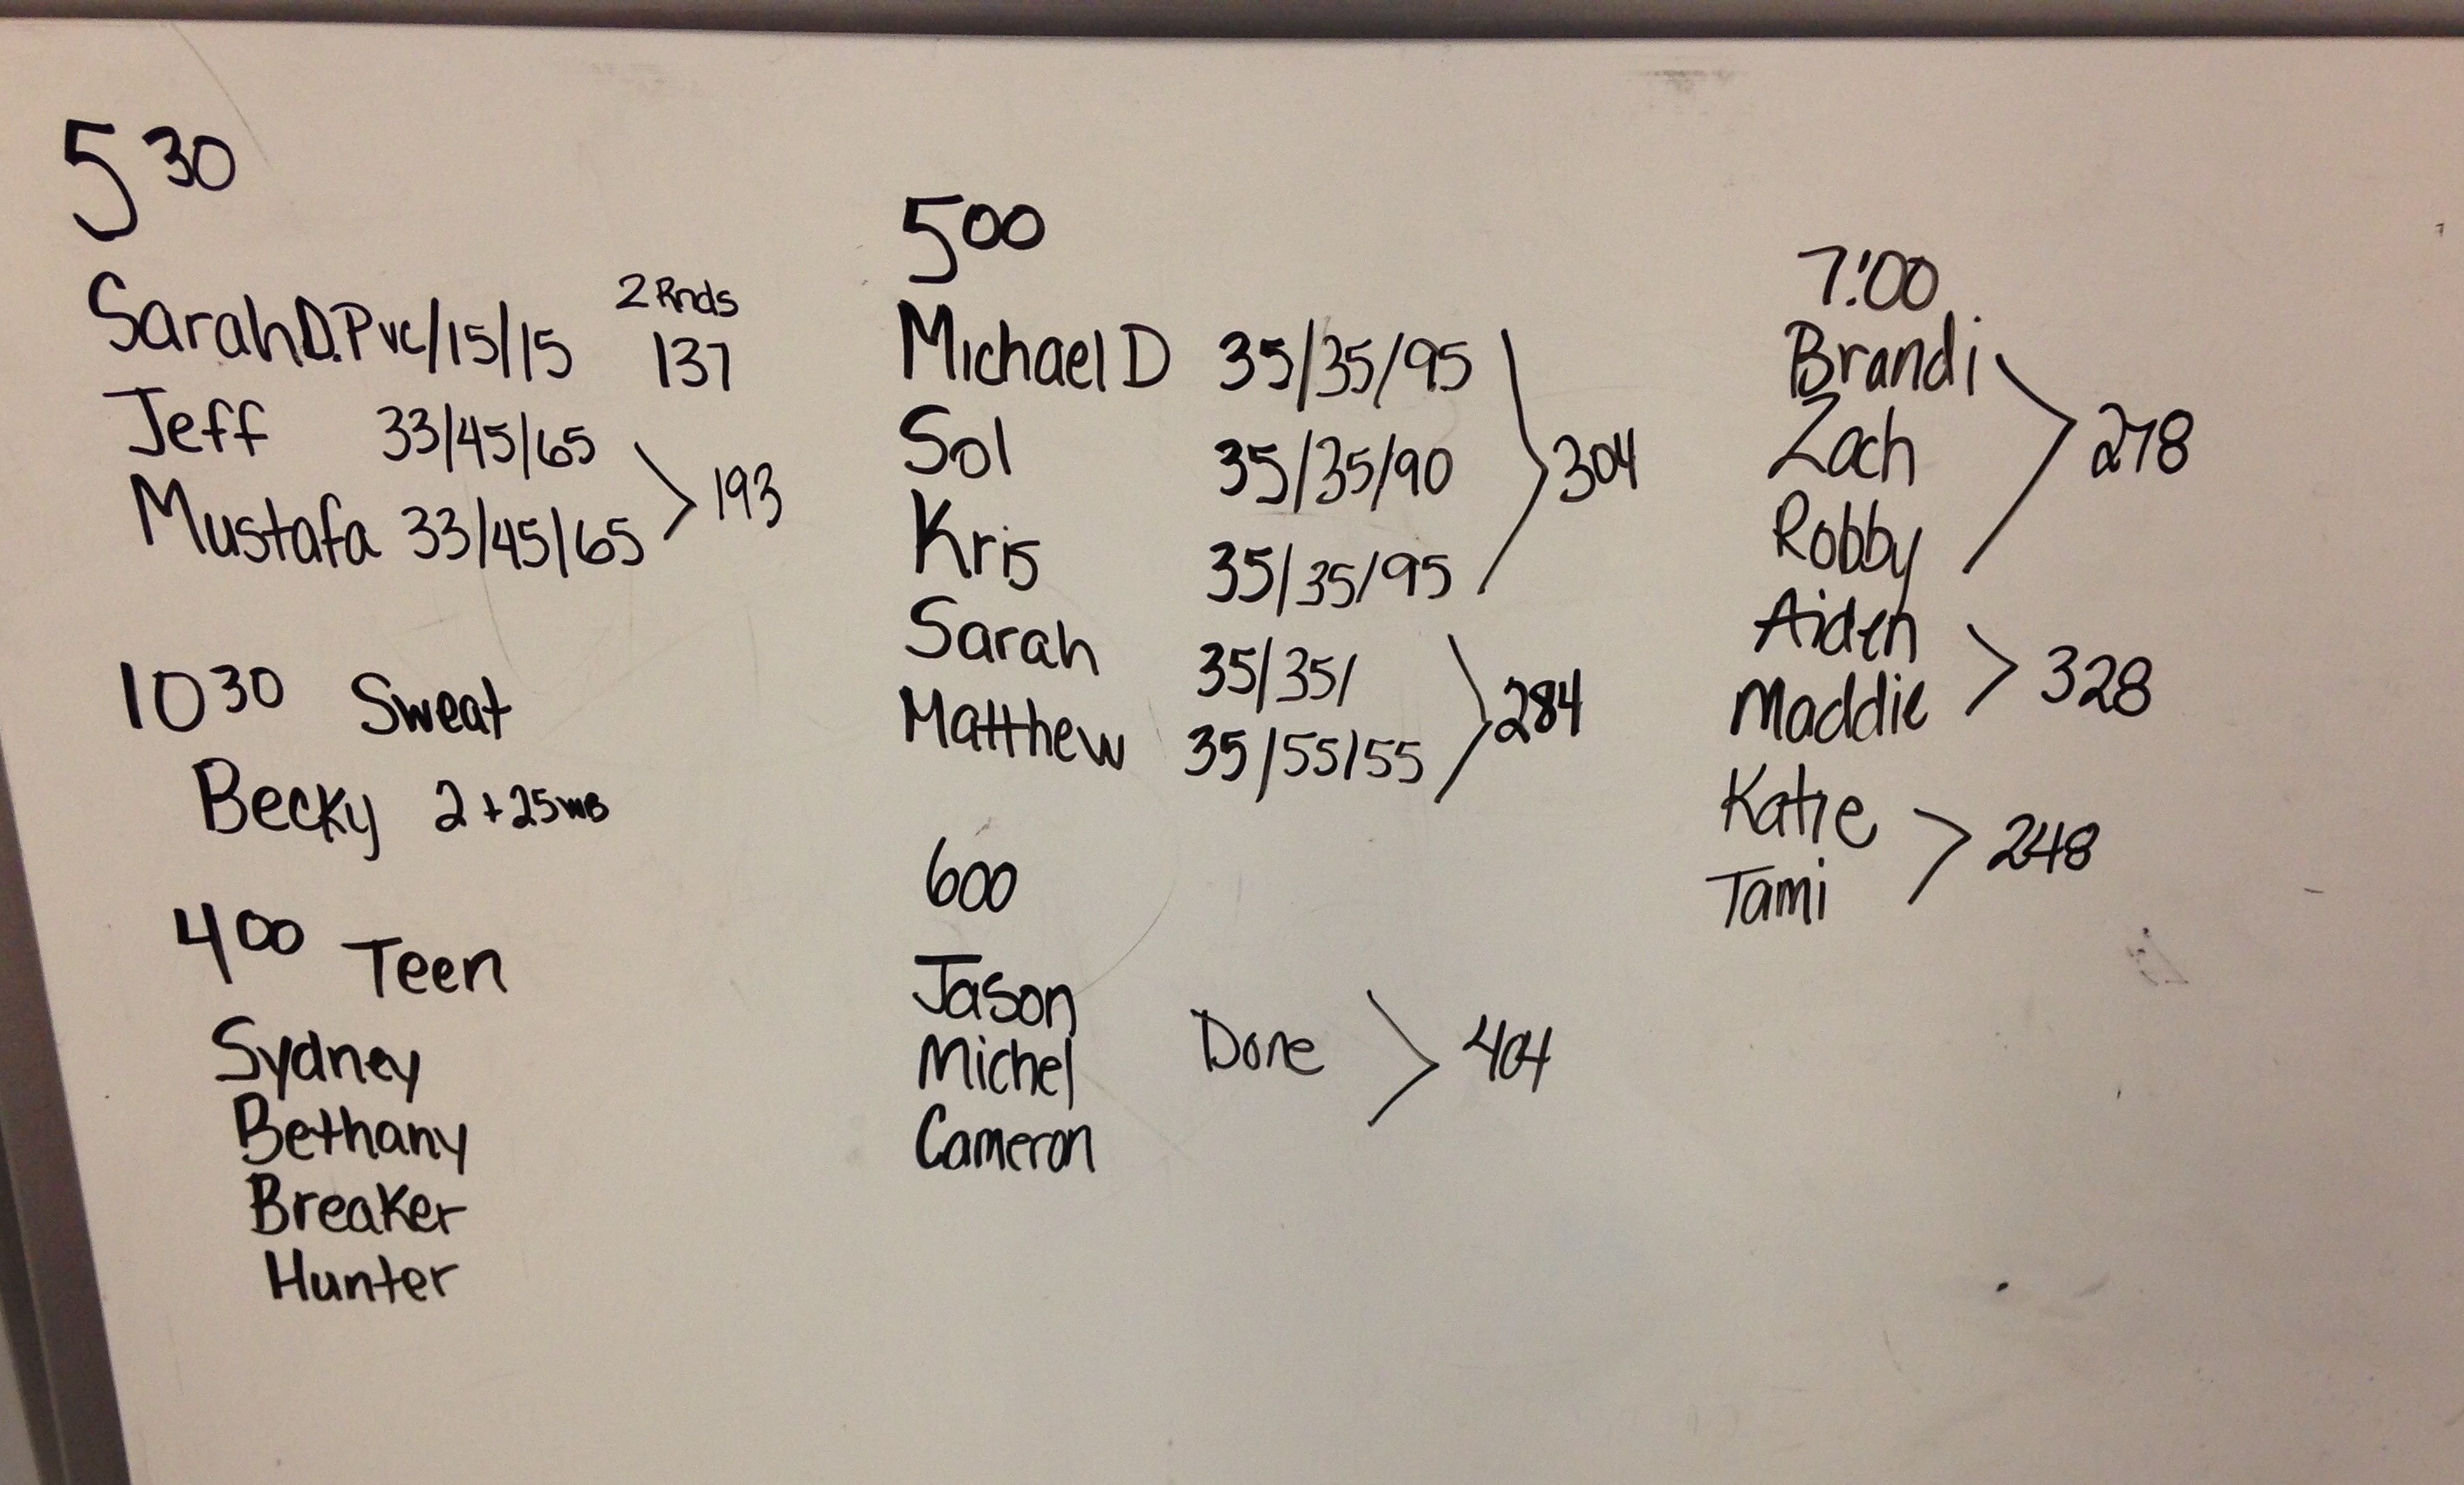 5 30
Sarah D. Pvc/15/15 2 Rnds 137
Jeff 33/45/65
Mustafa 33/45/65 > 193
10 30 Sweat
Becky 2 + 25 WB
4 00 Teen
Sydney
Bethany
Breaker
Hunter
5 00
Michael D 35/35/95
Sol 35/35/90 > 304
Kris 35/35/95
Sarah 35/35/
Matthew 35/55/55 > 284
600
Jason
Michel Done > 404
Cameron
7:00
Brandi
Zach > 278
Robby
Aiden
Maddie > 328
Katie
Tami > 248